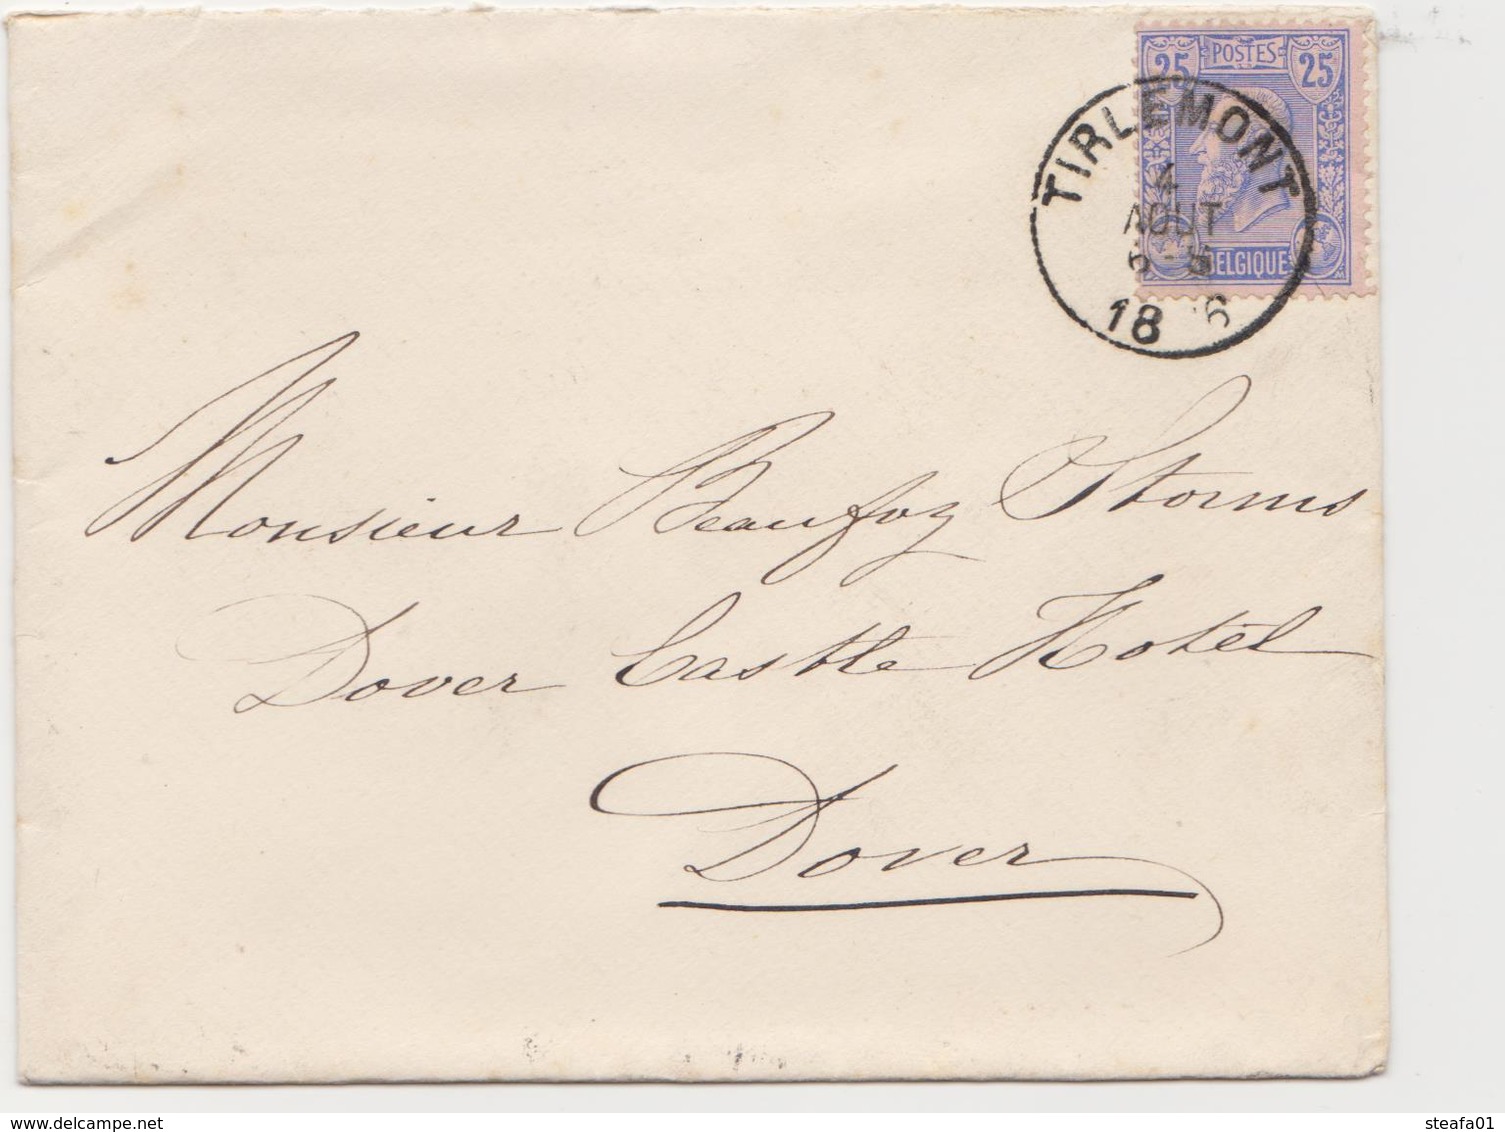 25 POSTES 25
TIRLEMONT
4
AOUT
6-8
BELGIQUE
18 6
Monsieur Beaufoy Storms
Dover Castle Hotel
Dover
delcampe.net
steafa01